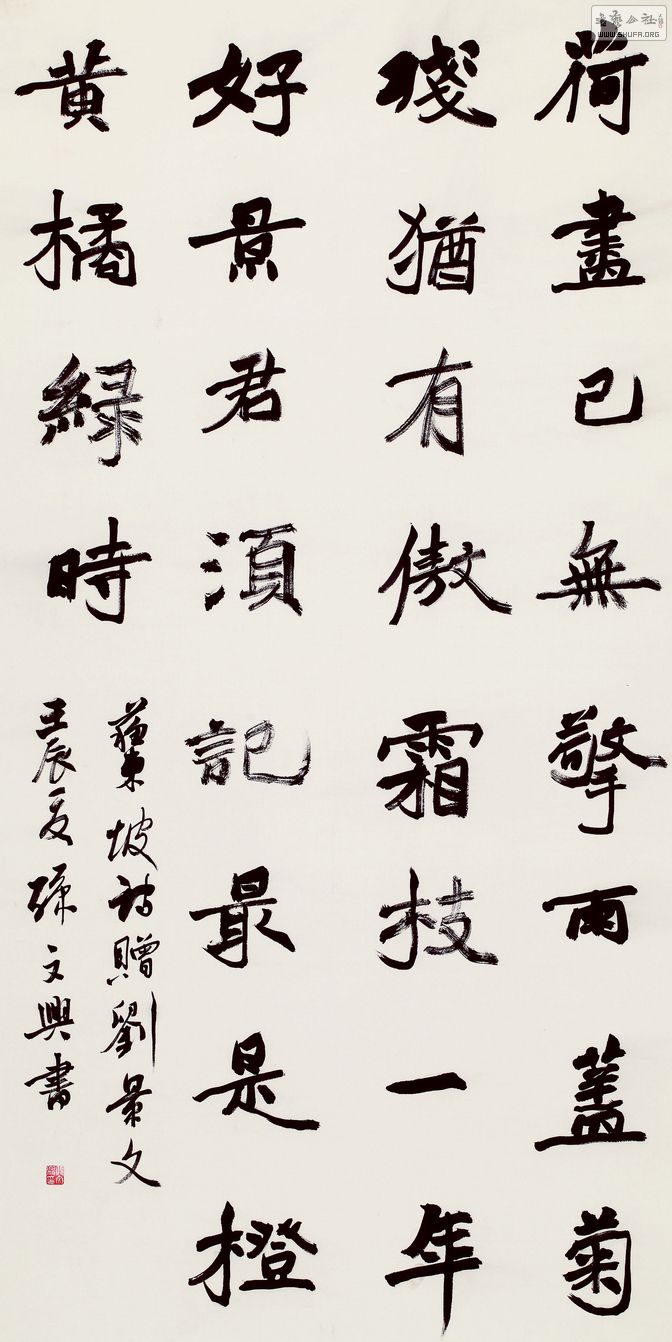 荷盡已無擎雨蓋菊
殘猶有傲霜枝一年
好景君須記最是橙
黃橘緑時
蘇東坡詩贈劉景文
壬辰夏孫文興書
書法公社
WWW.SHUFA.ORG